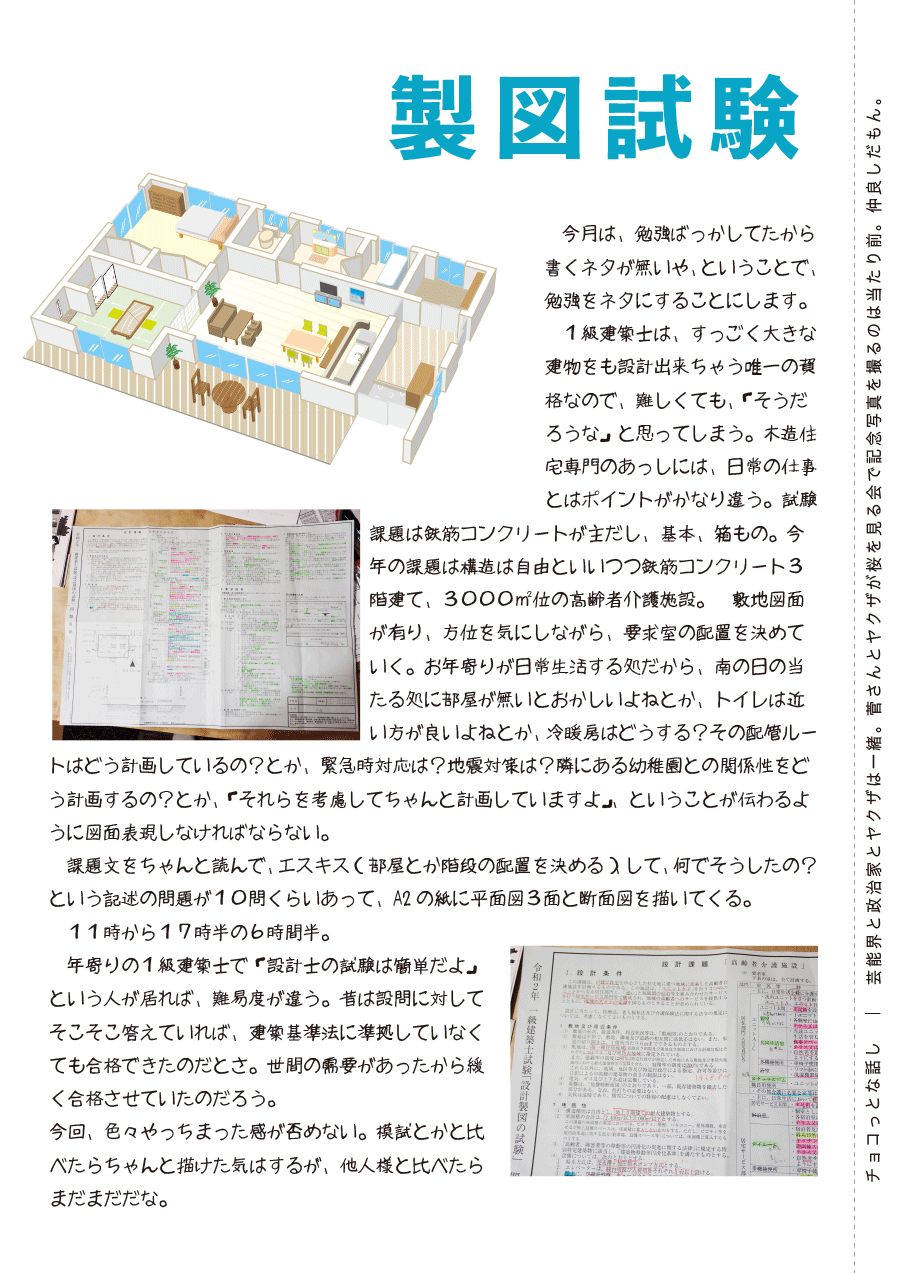 製図試験
今月は、勉強ばっかしてたから
書くネタが無いや、ということで、
勉強をネタにすることにします。
１級建築士は、すっごく大きな
建物をも設計出来ちゃう唯一の資
格なので、難しくても、『そうだ
ろうな』と思ってしまう。木造住
宅専門のあっしには、日常の仕事
とはポイントがかなり違う。試験
課題は鉄筋コンクリートが主だし、基本、箱もの。今
年の課題は構造は自由といいつつ鉄筋コンクリート３
階建て、３０００㎡位の高齢者介護施設。　敷地図面
が有り、方位を気にしながら、要求室の配置を決めて
いく。お年寄りが日常生活する処だから、南の日の当
たる処に部屋が無いとおかしいよねとか、トイレは近
い方が良いよねとか、冷暖房はどうする？その配管ルー
トはどう計画しているの？とか、緊急時対応は？地震対策は？隣にある幼稚園との関係性をど
う計画するの？とか、『それらを考慮してちゃんと計画していますよ』、ということが伝わるよ
うに図面表現しなければならない。
課題文をちゃんと読んで、エスキス（部屋とか階段の配置を決める）して、何でそうしたの？
という記述の問題が１０問くらいあって、A2の紙に平面図３面と断面図を描いてくる。
１１時から１７時半の６時間半。
年寄りの１級建築士で『設計士の試験は簡単だよ』
という人が居れば、難易度が違う。昔は設問に対して
そこそこ答えていれば、建築基準法に準拠していなく
ても合格できたのだとさ。世間の需要があったから緩
く合格させていたのだろう。
今回、色々やっちまった感が否めない。模試とかと比
べたらちゃんと描けた気はするが、他人様と比べたら
まだまだだな。
設計課題「高齢者介護施設」
令和２年 一級建築士試験「設計製図の試験」
Ⅰ 設計条件
チョコっとな話し　｜　芸能界と政治家とヤクザは一緒。菅さんとヤクザが桜を見る会で記念写真を撮るのは当たり前。仲良しだもん。